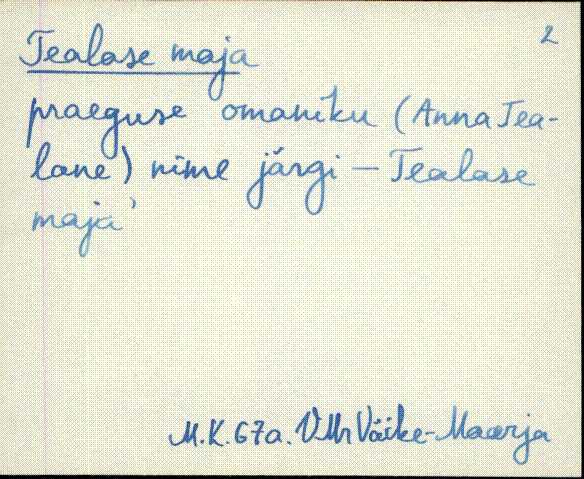 2
Tealase maja
praeguse omaniku (Anna Tea-
lane) nime järgi – Tealase
maja'
M.K. 67a. VMr Väike-Maarja